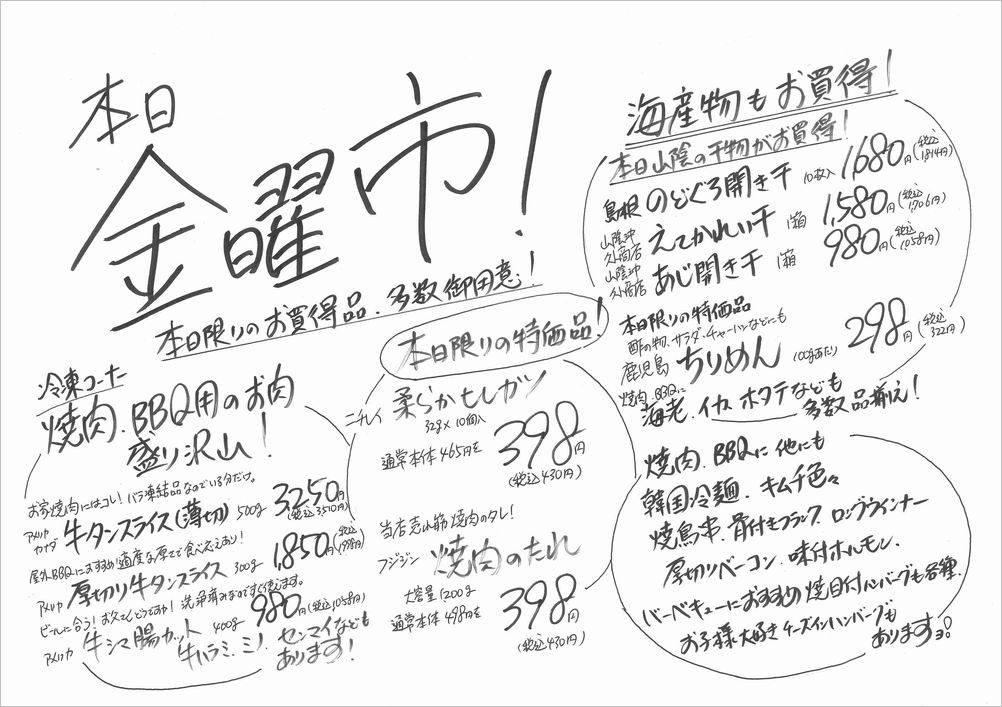 本日
金曜市!
本日限りのお買得品、多数御用意!
冷凍コーナー
焼肉、BBQ用のお肉
盛り沢山!
お家焼肉にはコレ! バラ凍結品なのでいる分だけ。
アメリカ カナダ 牛タンスライス(薄切) 500g 3250円(税込3510円)
屋外BBQにおすすめ!適度な厚さで食べ応えあり!
アメリカ 厚切り牛タンスライス 300g 1,850円(税込1998円)
ビールに合う! お次でどうですか! 洗浄済みなのですぐ使えます。
アメリカ 牛シマ腸カット 400g 980円(税込1,058円)
牛ハラミ、ミノ、センマイなども
あります!
本日限りの特価品!
ニチレイ 柔らかヒレカツ
32g×10個入
通常本体465円を 398円
(税込430円)
当店売れ筋焼肉のタレ!
フジジン 焼肉のたれ
大容量1200g
通常本体498円を 398円
(税込430円)
海産物もお買得!
本日山陰の干物がお買得!
島根 のどぐろ開き干 10枚入 1,680円(税込1,814円)
山陰沖 えてかれい干 1箱 1,580円(税込1,706円)
山陰沖 あじ開き干 1箱 980円(税込1,058円)
本日限りの特価品
酢の物、サラダ・チャーハンなどにも
鹿児島 ちりめん 100gあたり 298円(税込322円)
焼肉、BBQに
海老、イカ、ホタテなども
多数品揃え!
焼肉、BBQに他にも
韓国冷麺、キムチ色々
焼鳥串、骨付きフランク、ロングウインナー
厚切りベーコン、味付ホルモン、
バーベキューにおすすめ焼目付ハンバーグも各種、
お子様大好きチーズインハンバーグも
ありますョ!